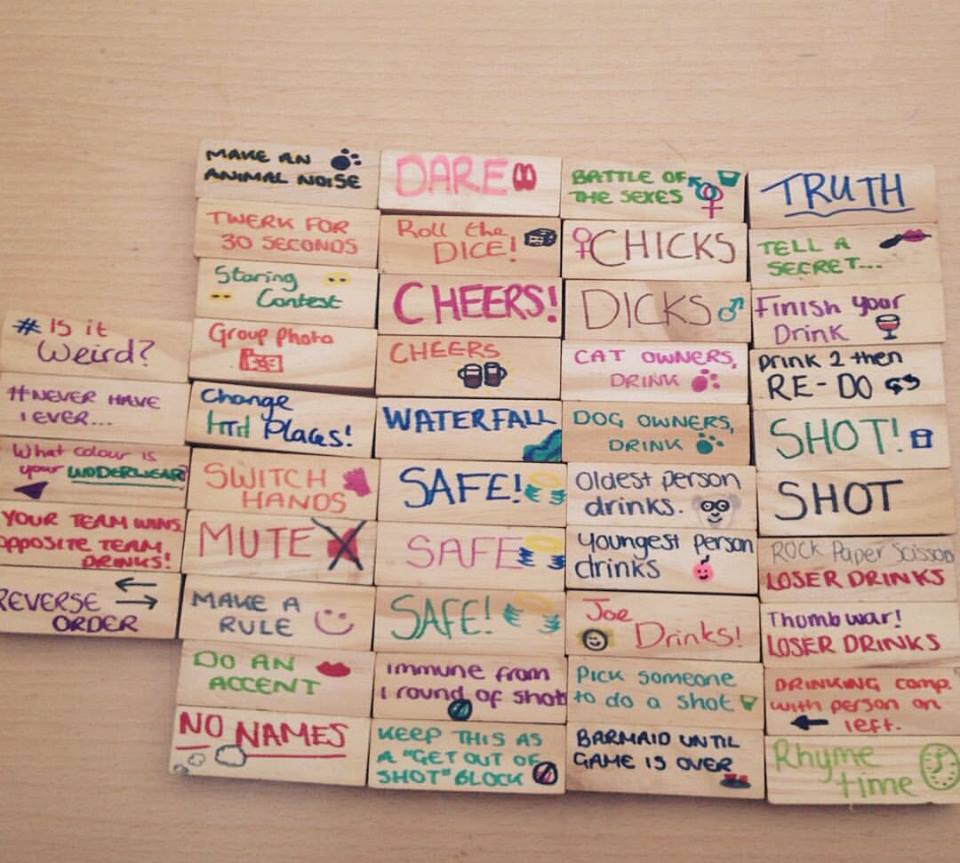 # Is it
Weird?
#NEVER HAVE
I EVER...
What colour is
your UNDERWEAR?
YOUR TEAM WINS,
OPPOSITE TEAM
DRINKS!
REVERSE
ORDER
MAKE AN
ANIMAL NOISE
TWERK FOR
30 SECONDS
Staring
Contest
Group Photo
Change
Places!
SWITCH
HANDS
MUTE
MAKE A
RULE
DO AN
ACCENT
NO NAMES
DARE
Roll the
DICE!
CHEERS!
CHEERS
WATERFALL
SAFE!
SAFE
SAFE!
Immune from
1 round of shots
KEEP THIS AS
A "GET OUT OF
SHOT" BLOCK
BATTLE OF
THE SEXES
CHICKS
DICKS
CAT OWNERS,
DRINK
DOG OWNERS,
DRINK
Oldest person
drinks.
Youngest person
drinks
Joe
Drinks!
Pick someone
to do a shot
BARMAID UNTIL
GAME IS OVER
TRUTH
TELL A
SECRET...
Finish your
Drink
Drink 2 then
RE-DO
SHOT!
SHOT
ROCK Paper Scissors
LOSER DRINKS
Thumb war!
LOSER DRINKS
DRINKING comp.
with person on
left.
Rhyme
time